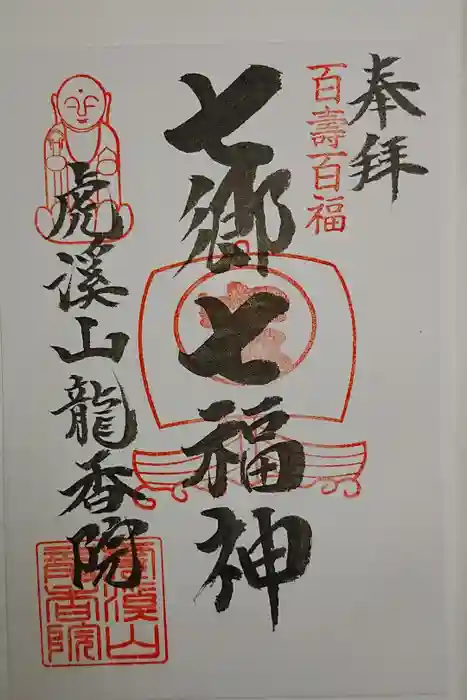 奉拝
百壽百福
七御七福神
虎溪山龍香院
虎溪山龍香院